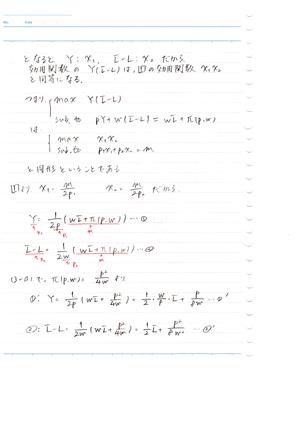 となると Y: x₁, L̄-L: x₂ だから
効用関数の Y(L̄-L)は, 四の効用関数 x₁x₂
と同等になる.
つまり { max Y(L̄-L)
sub. to pY+w(L̄-L) = wL̄+π(p.w)
は
{ max x₁x₂
sub. to p₁x₁+p₂x₂ = m
と同形ということである
四より x₁ = m/2p₁ x₂ = m/2p₂ だから.
Y = 1/2p (wL̄+π(p.w)) …①
x₁ p₁ m
L̄-L = 1/2w (wL̄+π(p.w)) …②
x₂ p₂ m
π(p.w) = p²/4w より
①: Y = 1/2p (wL̄+p²/4w) = 1/2・w/p・L̄ + p/8w …①'
②: L̄-L = 1/2w (wL̄+p²/4w) = 1/2 L̄ + p²/8w² …②'